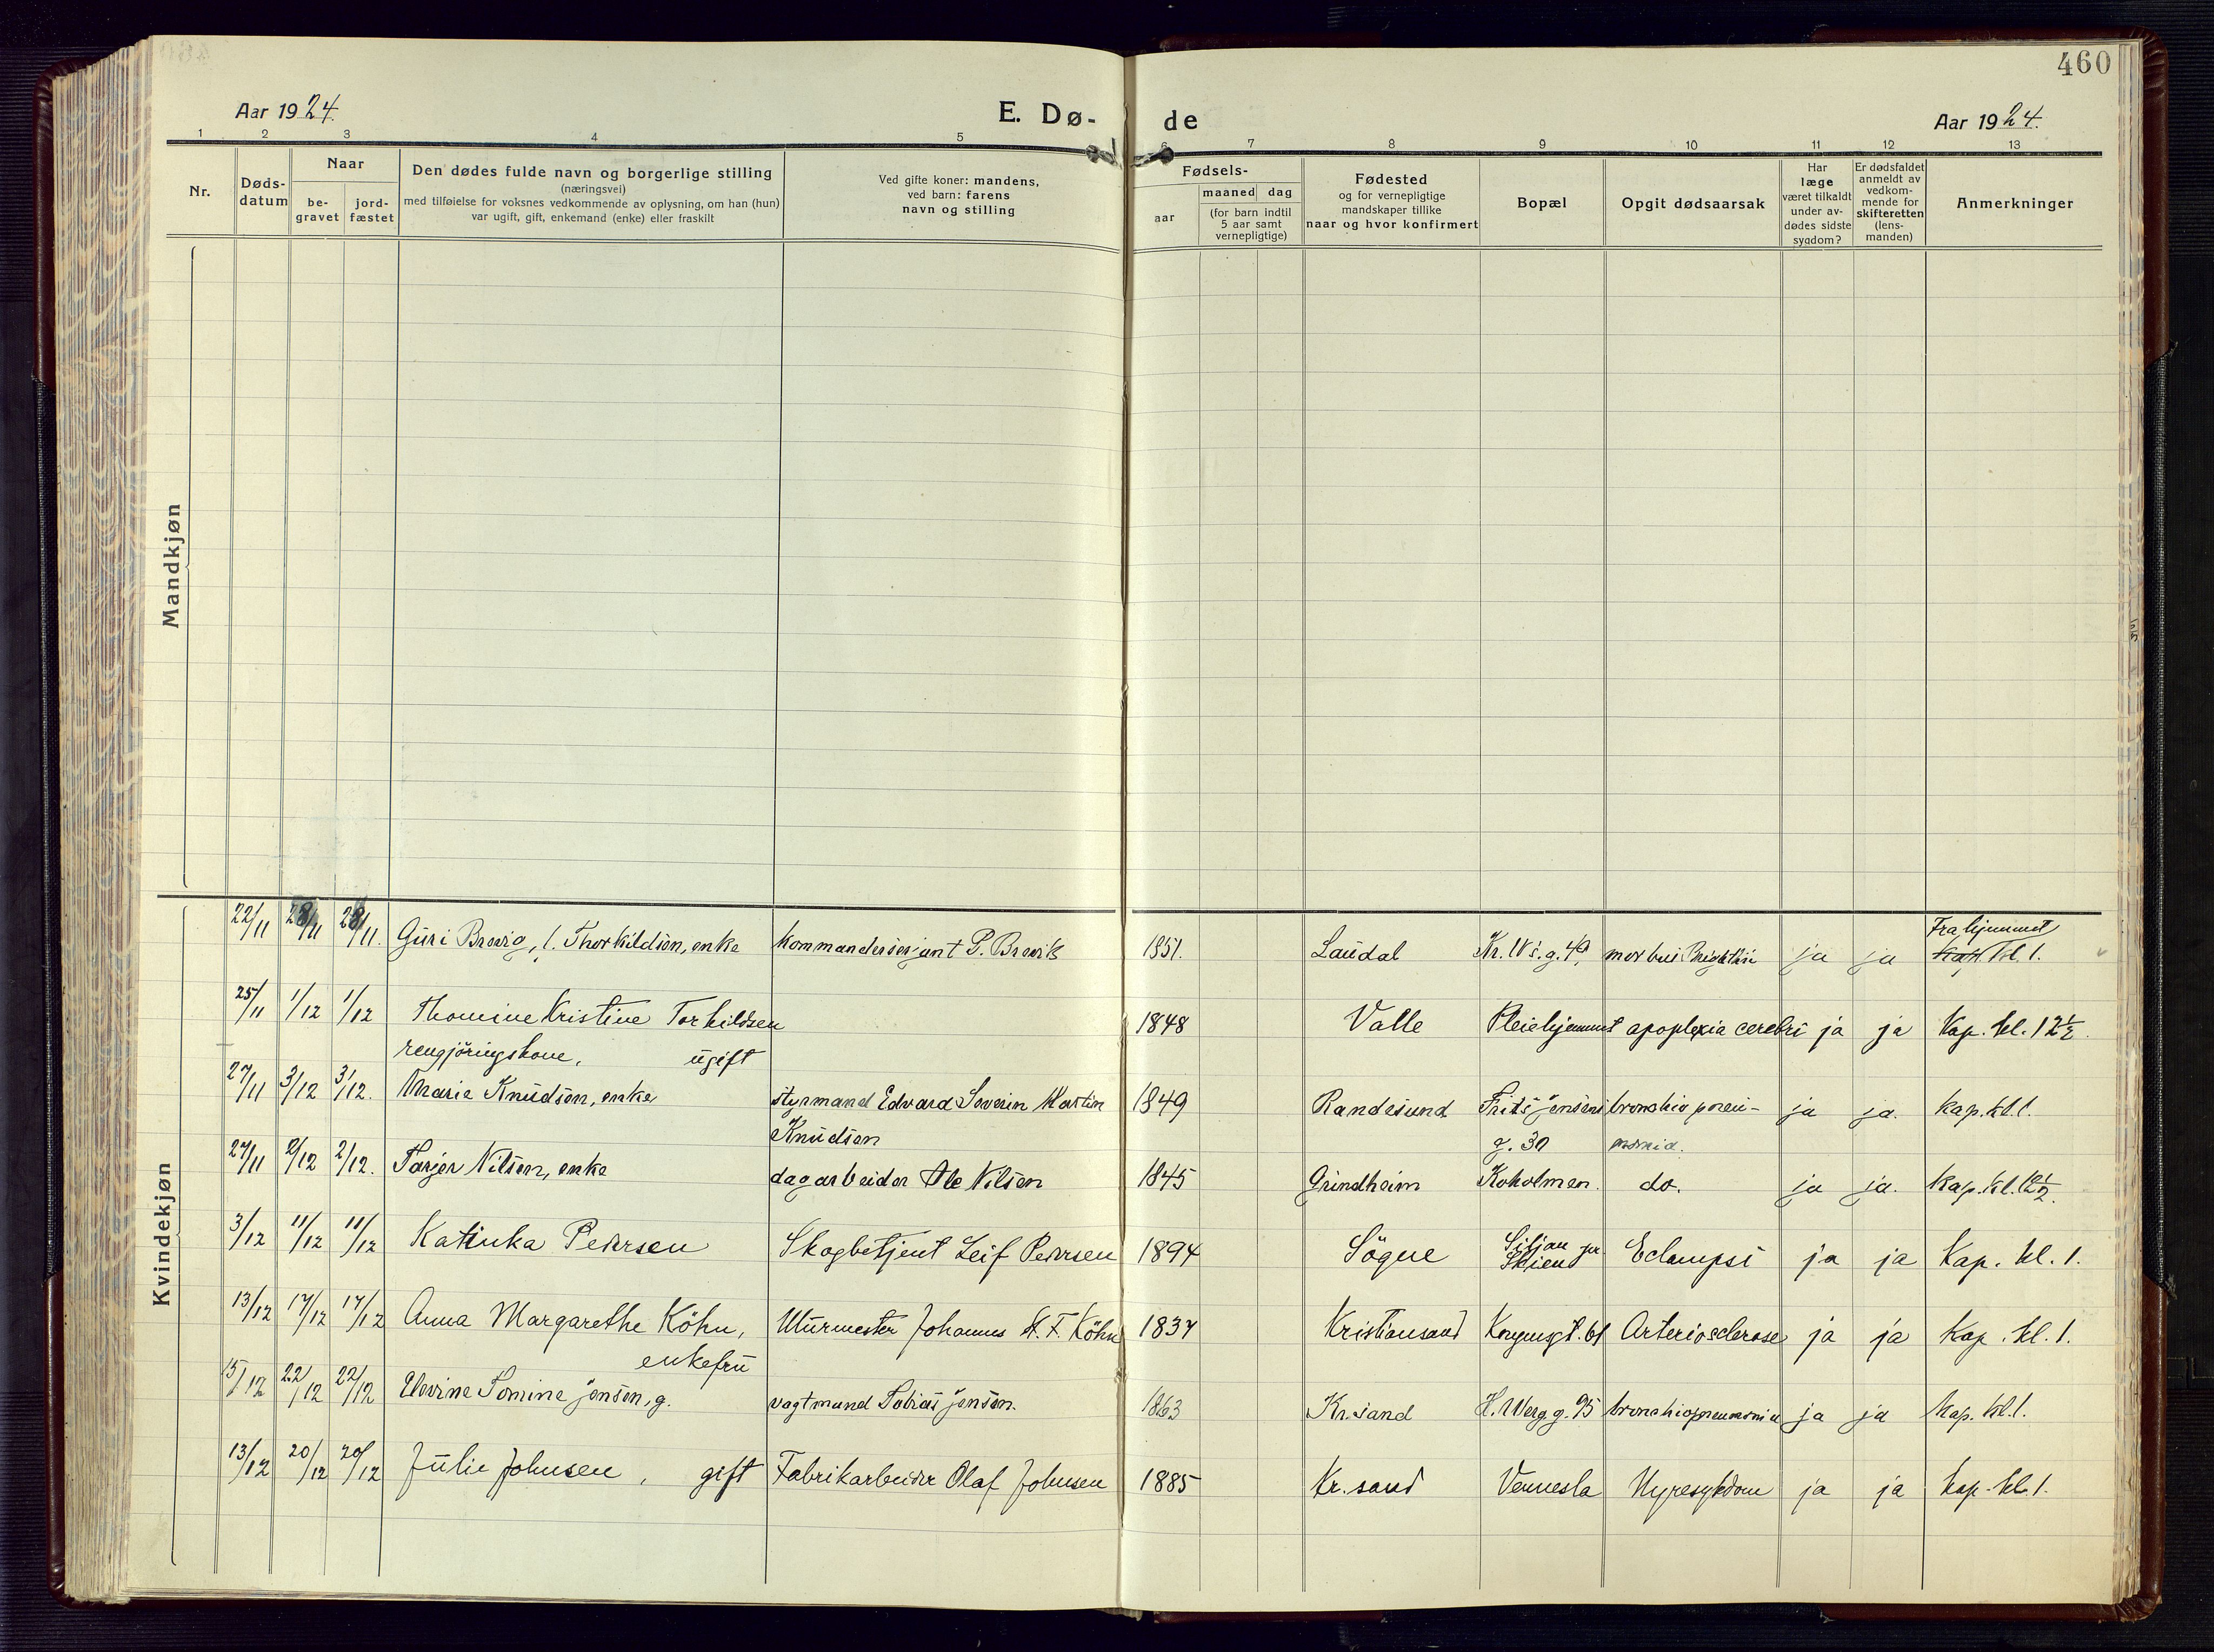 460
Aar 1924.
E. Dø-
de
Aar 1924.
1 2 3 4 5 6 7 8 9 10 11 12 13
Nr.
Døds-
datum
Naar
be-
gravet
jord-
fæstet
Den dødes fulde navn og borgerlige stilling
(næringsvei)
med tilføielse for voksnes vedkommende av oplysning, om han (hun)
var ugift, gift, enkemand (enke) eller fraskilt
Ved gifte koner: mandens,
ved barn: farens
navn og stilling
Fødsels-
aar
maaned dag
(for barn indtil
5 aar samt
vernepligtige)
Fødested
og for vernepligtige
mandskaper tillike
naar og hvor konfirmert
Bopæl
Opgit dødsaarsak
Har
læge
været tilkaldt
under av-
dødes sidste
sygdom?
Er dødsfaldet
anmeldt av
vedkom-
mende for
skifteretten
(lens-
manden)
Anmerkninger
Mandkjøn
Kvindekjøn
Fra hjemmet
22/11 28/11 28/11. Guri Brevig, f. Thorkildsen, enke kommandersersjant P. Brevik 1851. Laudal Kr. IVs. g. 49. morbus Brightii ja ja Kap. kl. 1.
25/11 1/12 1/12 Thomine Kristine Torkildsen 1848 Valle Pleiehjemmet apoplexia cerebri ja ja Kap. kl. 12½.
rengjöringskone, ugift
27/11 3/12 3/12. Marie Knudsen, enke styrmand Edvard Severin Martin 1849 Randesund Frits Jensens bronchiopneu- ja ja. Kap. kl. 1.
Knudsen g. 30 monia.
27/11 2/12 2/12. Tarjer Nilsen, enke dagarbeider Ole Nilsen 1845 Grindheim Koholmen. do. ja ja. Kap. kl. 12½.
3/12 11/12 11/12 Katinka Pedersen Skogbetjent Leif Pedersen 1894 Sögne Siljan pr Skien Eclampsi ja ja Kap. kl. 1.
13/12 17/12 17/12 Anna Margarethe Köhn, Murmester Johannes H. F. Köhn 1837 Kristiansand Kongensgt. 61 Arteriosclerose ja ja Kap. kl. 1.
enkefru
15/12 22/12 22/12 Elevine Tomine Jensen, g. vagtmand Tobias Jensen. 1863 Kr.sand H. Werg. g. 95 bronchiopneumonia ja ja Kap. kl. 1.
13/12 20/12 20/12 Julie Johnsen, gift Fabrikarbeider Olaf Johnsen 1885 Kr.sand Vennesla Nyresykdom ja ja Kap. kl. 1.